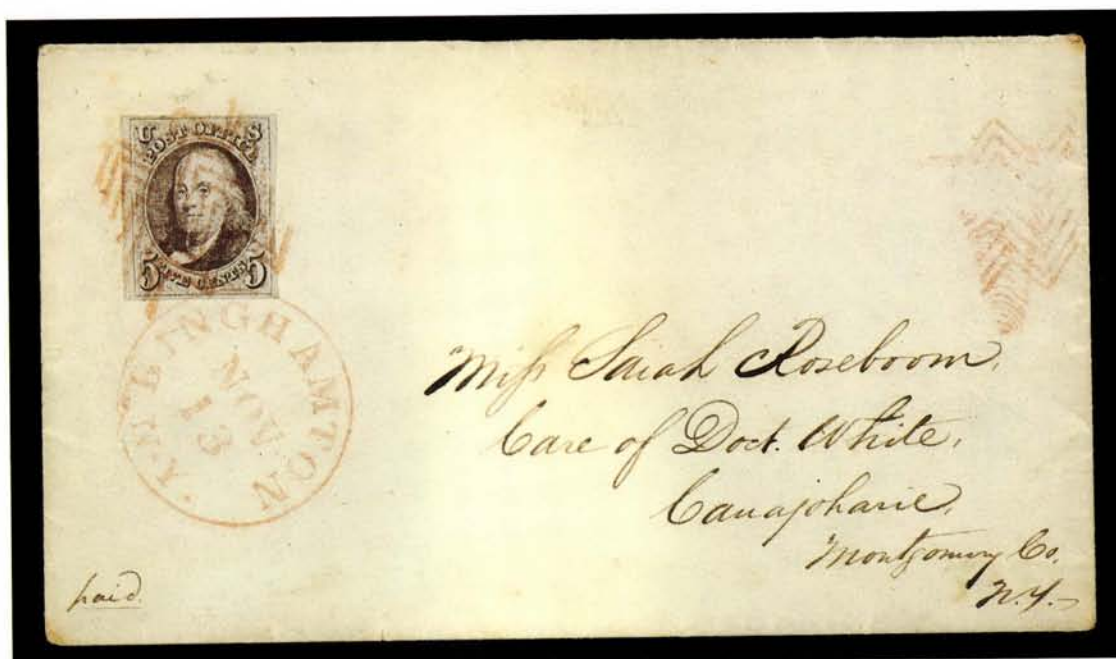 U S
POST OFFICE
5 FIVE CENTS 5
BINGHAMTON N.Y.
NOV
13
Miss Sarah Roseboom.
Care of Doct. White.
Canajoharie.
Montgomery Co.
N.Y.
paid.